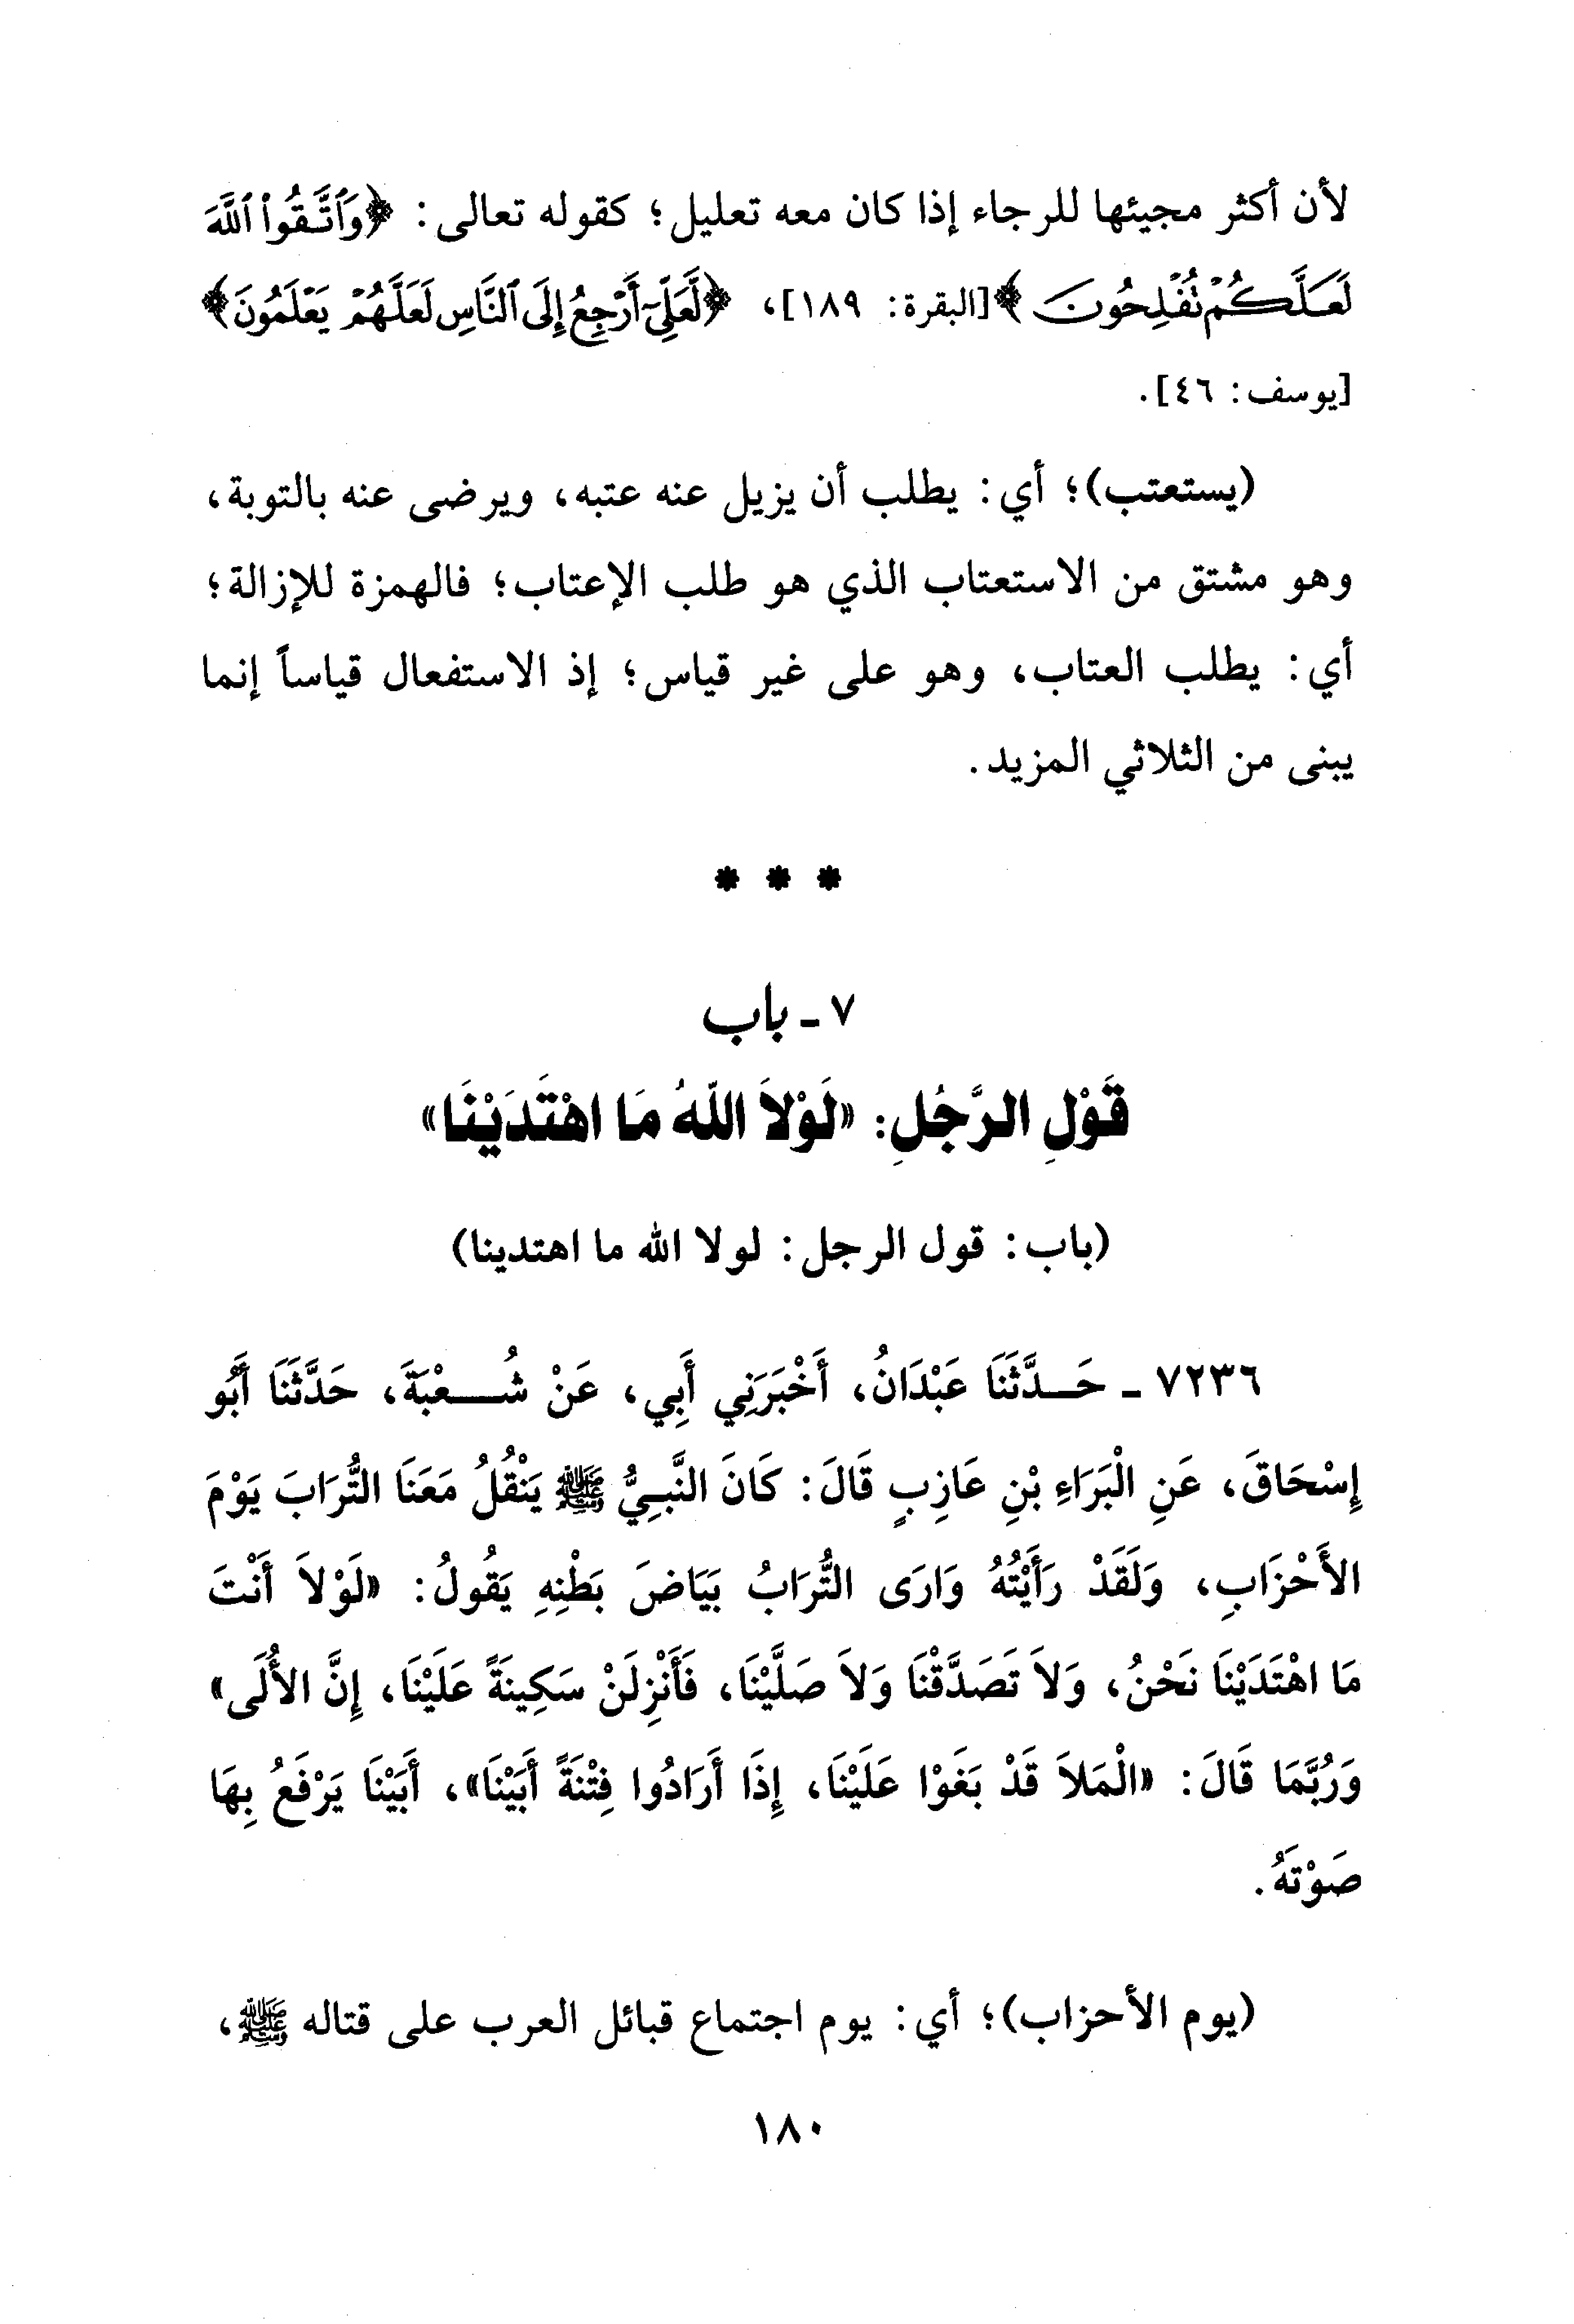 لأن أكثر مجيئها للرجاء إذا كان معه تعليل؛ كقوله تعالى: ﴿وَٱتَّقُوا۟ ٱللَّهَ
لَعَلَّكُمْ تُفْلِحُونَ﴾ [البقرة: ١٨٩]، ﴿لَّعَلِّىٓ أَرْجِعُ إِلَى ٱلنَّاسِ لَعَلَّهُمْ يَعْلَمُونَ﴾
[يوسف: ٤٦].
(يستعتب)؛ أي: يطلب أن يزيل عنه عتبه، ويرضى عنه بالتوبة،
وهو مشتق من الاستعتاب الذي هو طلب الإعتاب؛ فالهمزة للإزالة؛
أي: يطلب العتاب، وهو على غير قياس؛ إذ الاستفعال قياساً إنما
يبنى من الثلاثي المزيد.
* * *
٧ ـ باب
قَوْلِ الرَّجُلِ: «لَوْلاَ اللهُ مَا اهْتَدَيْنَا»
(باب: قول الرجل: لولا الله ما اهتدينا)
٧٢٣٦ ـ حَدَّثَنَا عَبْدَانُ، أَخْبَرَنِي أَبِي، عَنْ شُعْبَةَ، حَدَّثَنَا أَبُو
إِسْحَاقَ، عَنِ الْبَرَاءِ بْنِ عَازِبٍ قَالَ: كَانَ النَّبِيُّ ﷺ يَنْقُلُ مَعَنَا التُّرَابَ يَوْمَ
الأَحْزَابِ، وَلَقَدْ رَأَيْتُهُ وَارَى التُّرَابُ بَيَاضَ بَطْنِهِ يَقُولُ: «لَوْلاَ أَنْتَ
مَا اهْتَدَيْنَا نَحْنُ، وَلاَ تَصَدَّقْنَا وَلاَ صَلَّيْنَا، فَأَنْزِلَنْ سَكِينَةً عَلَيْنَا، إِنَّ الأُلَى»
وَرُبَّمَا قَالَ: «الْمَلاَ قَدْ بَغَوْا عَلَيْنَا، إِذَا أَرَادُوا فِتْنَةً أَبَيْنَا»، أَبَيْنَا يَرْفَعُ بِهَا
صَوْتَهُ.
(يوم الأحزاب)؛ أي: يوم اجتماع قبائل العرب على قتاله ﷺ،
١٨٠